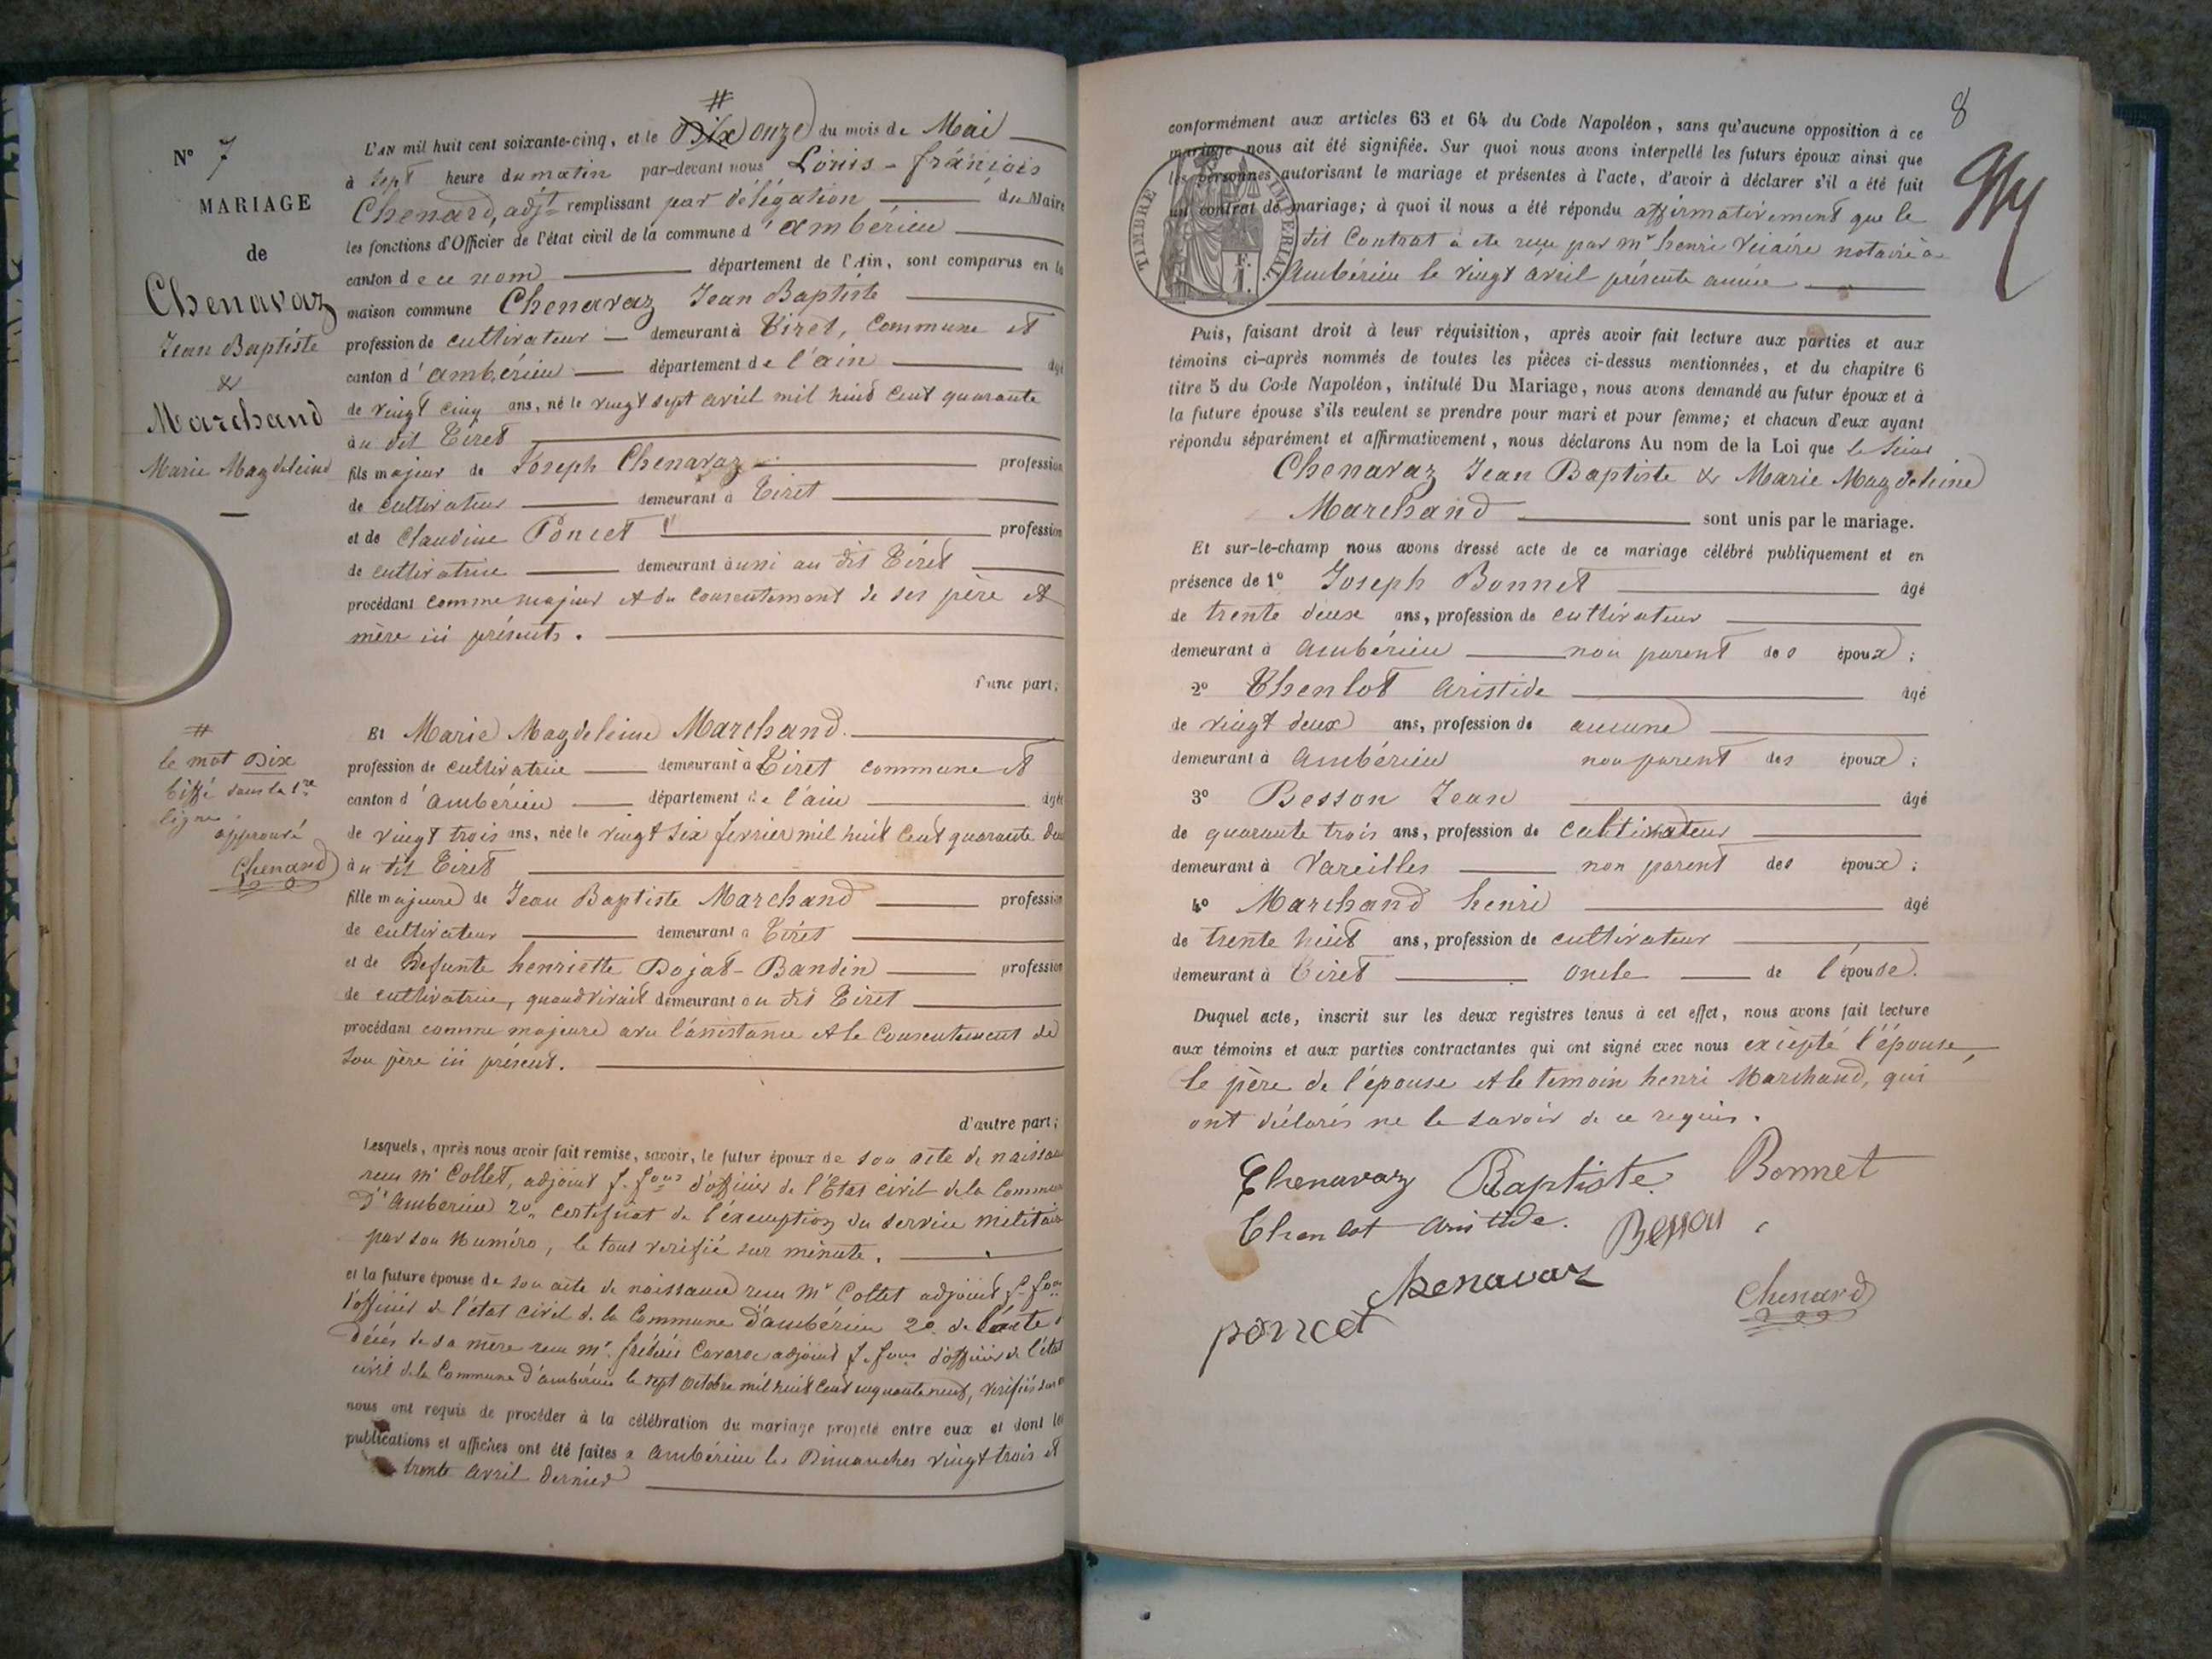 N° 7
MARIAGE
de
Chenavaz
Jean Baptiste
&
Marchand
Marie Magdeleine
#
le mot Dix
biffé dans la 1re
ligne
approuvé
Chenard
#
L'AN mil huit cent soixante-cinq, et le Dix onze du mois de Mai
à sept heure du matin par-devant nous Louis-françois
Chenard, adjt remplissant par délégation du Maire
les fonctions d'Officier de l'état civil de la commune d'ambérieu
canton de ce nom département de l'Ain, sont comparus en la
maison commune Chenavaz Jean Baptiste
profession de cultivateur demeurant à Tiret, Commune et
canton d'ambérieu département de l'ain âgé
de vingt cinq ans, né le vingt sept avril mil huit cent quarante
au dit Tiret
fils majeur de Joseph Chenavaz profession
de cultivateur demeurant à Tiret
et de Claudine Poncet profession
de cultivatrice demeurant aussi au dit Tiret
procédant comme majeur et du consentement de ses père et
mère ici présents.
d'une part;
Et Marie Magdeleine Marchand.
profession de cultivatrice demeurant à Tiret commune et
canton d'ambérieu département de l'ain âgée
de vingt trois ans, née le vingt six fevrier mil huit cent quarante deux
au dit Tiret
fille majeure de Jean Baptiste Marchand profession
de cultivateur demeurant à Tiret
et de Defunte henriette Dojat-Bandin profession
de cultivatrice, quand vivait demeurant au dit Tiret
procédant comme majeure avec l'assistance et le Consentement de
son père ici présent.
d'autre part;
Lesquels, après nous avoir fait remise, savoir, le futur époux de son acte de naissance
reçu mr Collet, adjoint f. fons d'officier de l'État civil de la Commune
d'Amberieu 2° Certificat de l'éxemption du service militaire
par son Numéro, le tout verifié sur minute.
et la future épouse de son acte de naissance reçu Mr Collet adjoint f. fons
d'officier de l'état civil de la Commune d'ambérieu 2° de l'acte d
décés de sa mère reçu mr. frédéric Cavaroc adjoint f. fons d'officier de l'état
civil de la Commune d'ambérieu le sept octobre mil huit cent cinquante neuf, verifiés sur
nous ont requis de procéder à la célébration du mariage projeté entre eux et dont les
publications et affiches ont été faites à Ambérieu les Dimanches vingt trois et
trente avril dernier
8
conformément aux articles 63 et 64 du Code Napoléon, sans qu'aucune opposition à ce
mariage nous ait été signifiée. Sur quoi nous avons interpellé les futurs époux ainsi que
les personnes autorisant le mariage et présentes à l'acte, d'avoir à déclarer s'il a été fait
un contrat de mariage; à quoi il nous a été répondu affirmativement que le
dit Contrat a ete reçu par mr henri Vicaire notaire à
Ambérieu le vingt avril présente année
TIMBRE IMPERIAL
Puis, faisant droit à leur réquisition, après avoir fait lecture aux parties et aux
témoins ci-après nommés de toutes les pièces ci-dessus mentionnées, et du chapitre 6
titre 5 du Code Napoléon, intitulé Du Mariage, nous avons demandé au futur époux et à
la future épouse s'ils veulent se prendre pour mari et pour femme; et chacun d'eux ayant
répondu séparément et affirmativement, nous déclarons Au nom de la Loi que le Sieur
Chenavaz Jean Baptiste & Marie Magdeleine
Marchand sont unis par le mariage.
Et sur-le-champ nous avons dressé acte de ce mariage célébré publiquement et en
présence de 1° Joseph Bonnet âgé
de trente deux ans, profession de cultivateur
demeurant à Ambérieu non parent des époux;
2° Thenlot Aristide âgé
de vingt deux ans, profession de aucune
demeurant à Ambérieu non parent des époux;
3° Besson Jean âgé
de quarante trois ans, profession de cultivateur
demeurant à Vareilles non parent des époux;
4° Marchand henri âgé
de trente huit ans, profession de cultivateur
demeurant à Tiret oncle de l'épouse.
Duquel acte, inscrit sur les deux registres tenus à cet effet, nous avons fait lecture
aux témoins et aux parties contractantes qui ont signé avec nous excepté l'épouse,
le père de l'épouse et le temoin henri Marchand, qui
ont déclarés ne le savoir de ce requis.
Chenavaz Baptiste. Bonnet
Thenlot Aristide. Besson
Chenavaz
Chenard
poncet